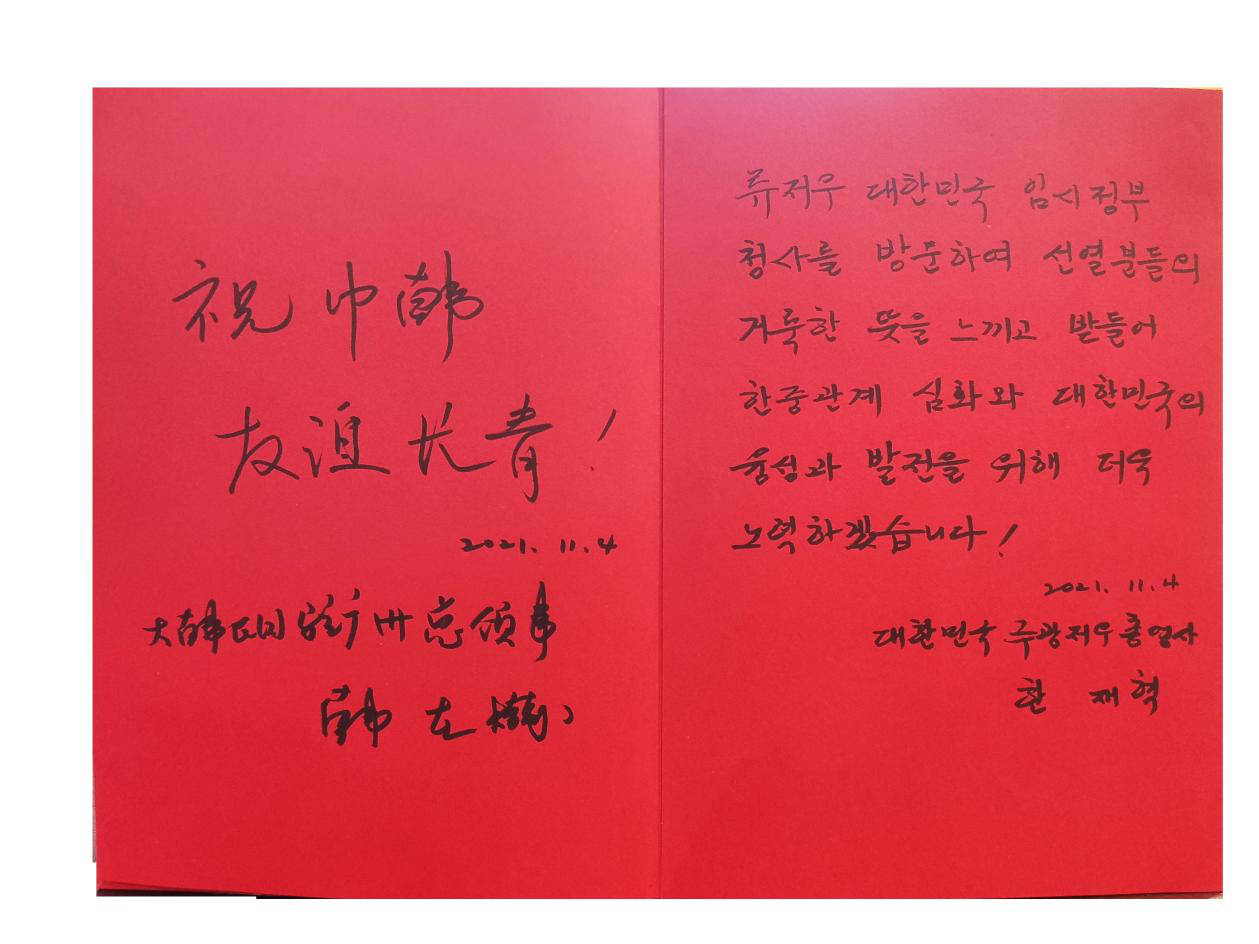 祝中韩
友谊长青!
2021. 11. 4
大韩民国驻广州总领事
韩在㷜
류저우 대한민국 임시정부
청사를 방문하여 선열분들의
거룩한 뜻을 느끼고 받들어
한중관계 심화와 대한민국의
융성과 발전을 위해 더욱
노력하겠습니다!
2021. 11. 4
대한민국 주광저우총영사
한 재혁